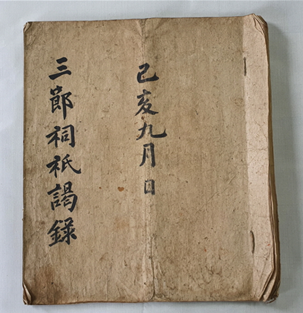 己亥九月 日
三節祠祗謁錄